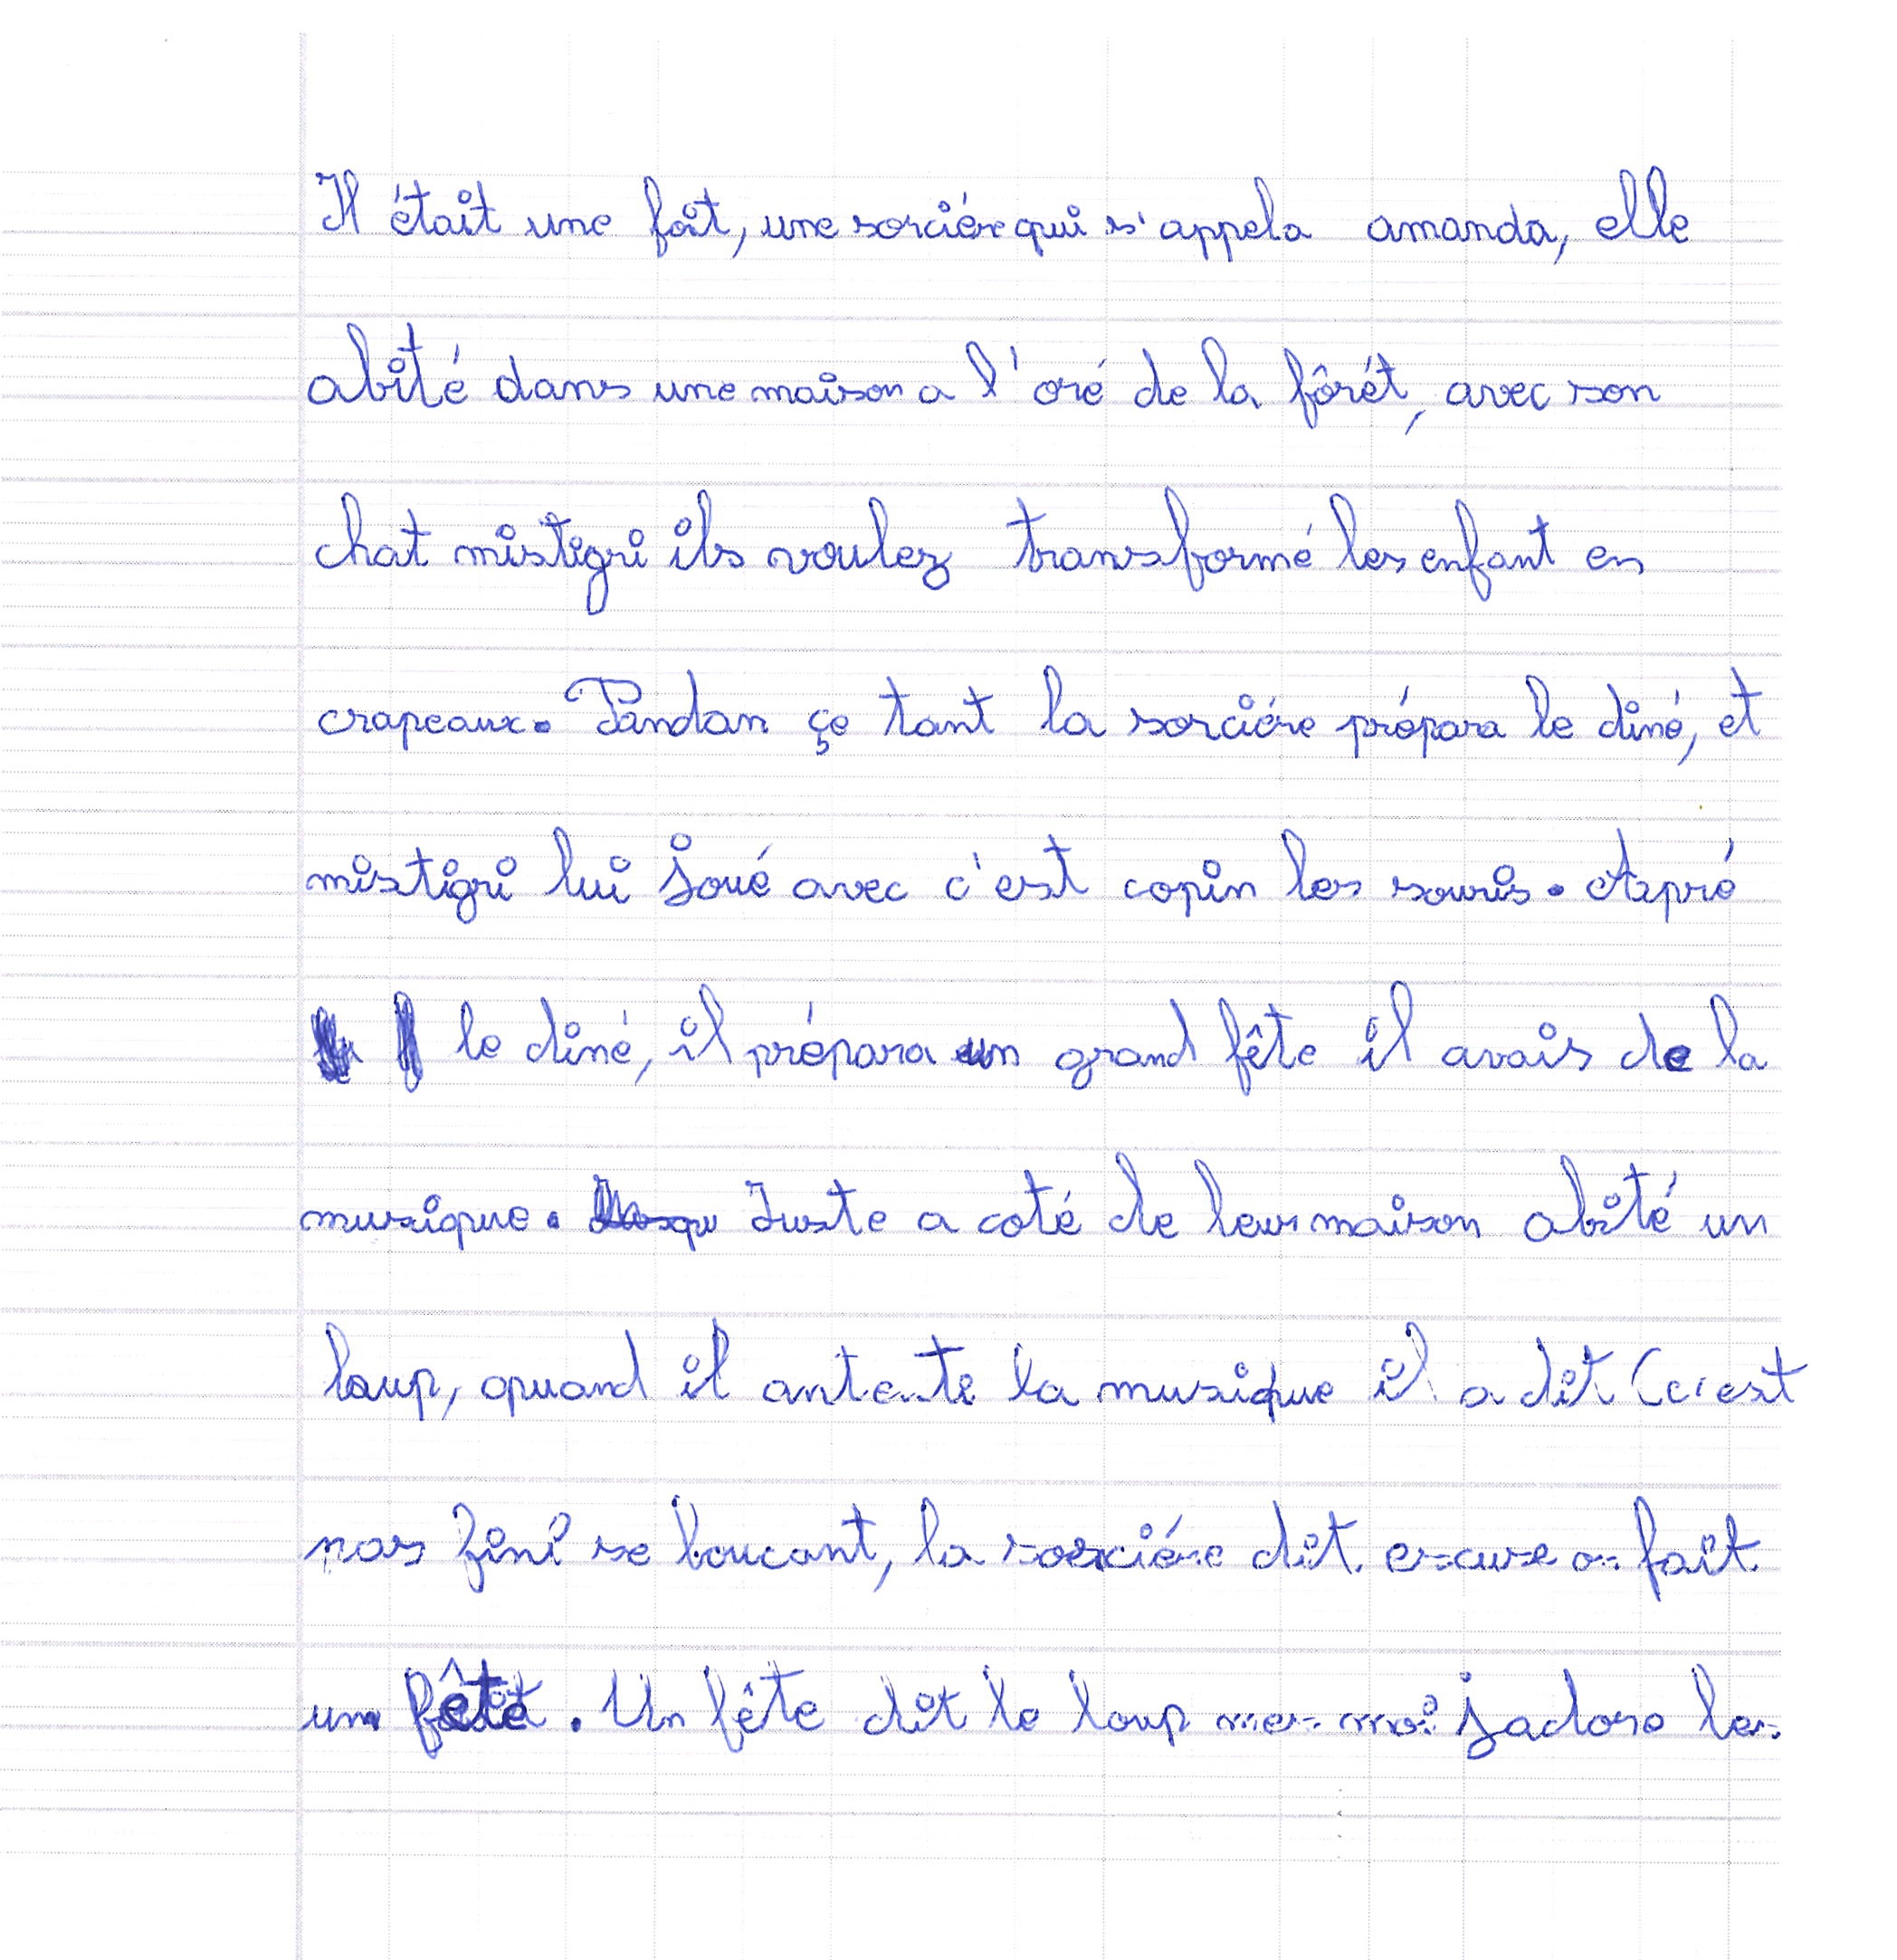 Il était une foit, une sorciére qui s'appela amanda, elle
abité dans une maison a l'oré de la fôrét, avec son
chat mistigri ils voulez transformé les enfant en
crapeaux. Pandan çe tant la sorciére prépara le diné, et
mistigri lui joué avec c'est copin les souris. Aspré
le diné, il prépara un grand fête il avais de la
musique. Juste a coté de leur maison abité un
loup, quand il antente la musique il a dit (c'est
pas fini se boucant, la sorciére dit escuse on fait
un fête. Un fête dit le loup mes moi j'adore les